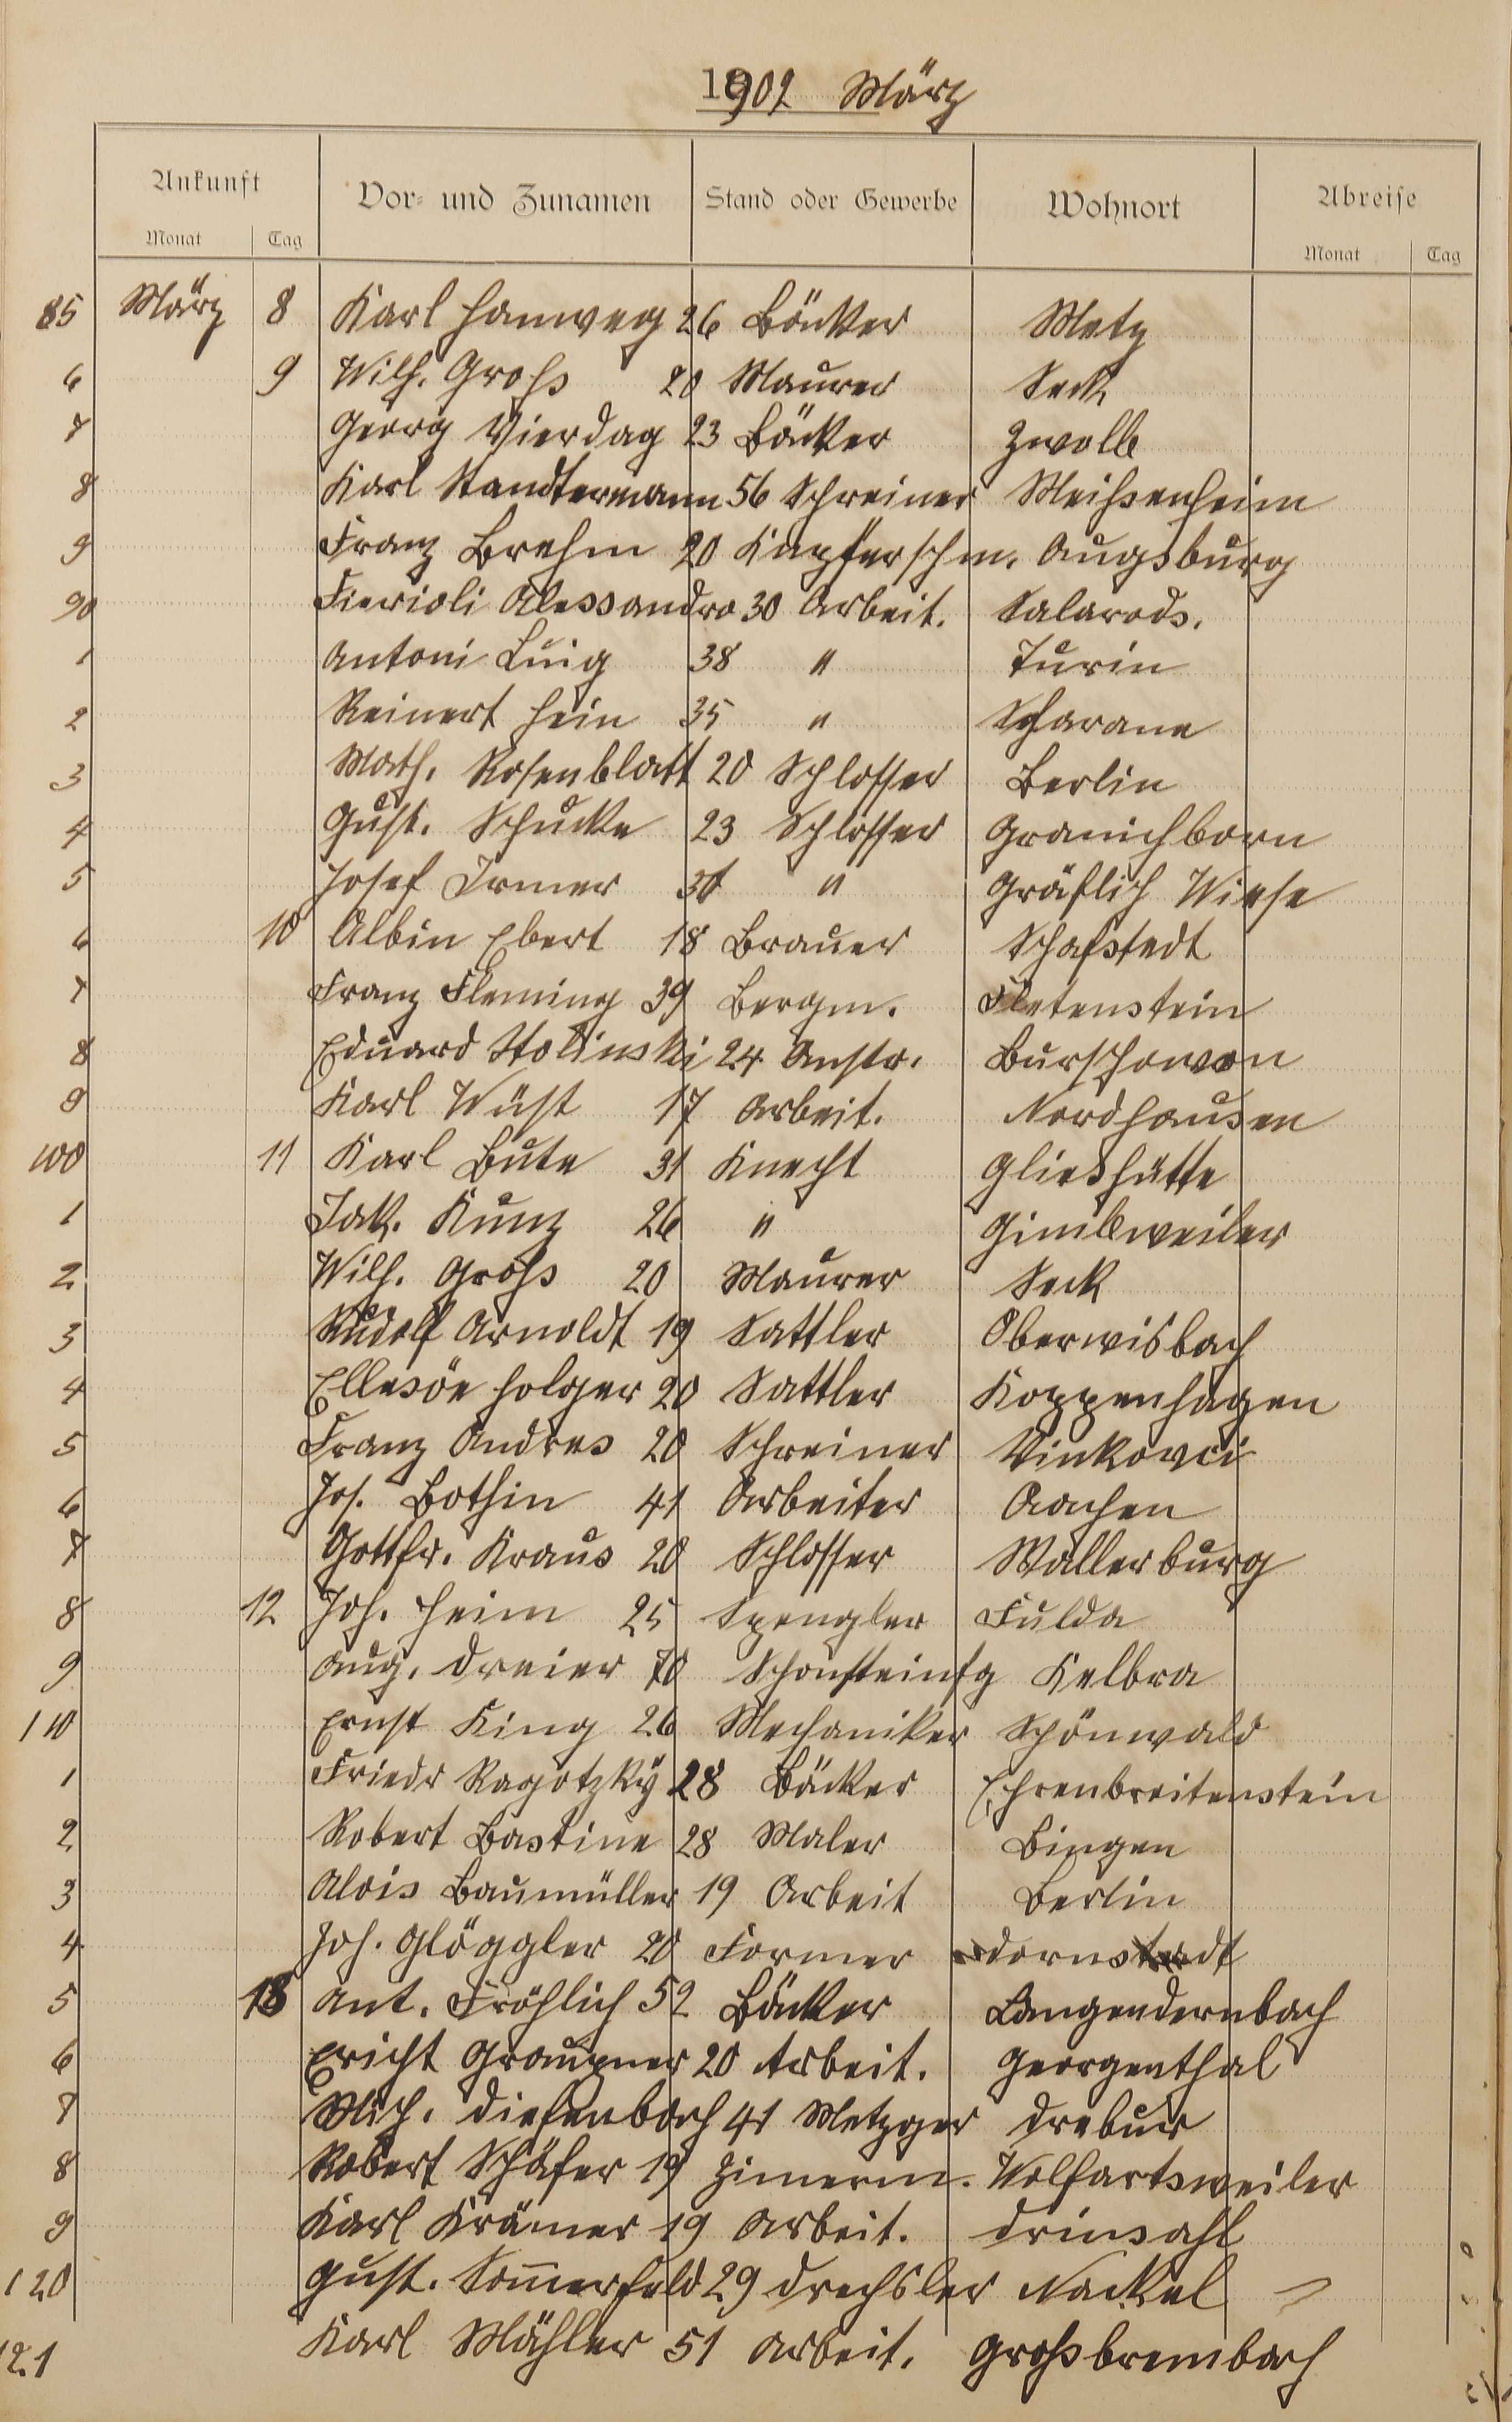 1902 März
Ankunft Vor- und Zunamen Stand oder Gewerbe Wohnort Abreise
Monat Tag Monat Tag
85 März 8 Karl Hanweg 26 Bäcker Metz
6 9 Wilh. Groß 20 Maurer Seck
7 Georg Vierdag 23 Bäcker Zwolle
8 Karl Standtermann 56 Schreiner Meißenheim
9 Franz Brehm 20 Kupferschm. Augsburg
90 Fierioli Alessandro 30 Arbeit. Salarods.
1 Antoni Luig 38 " Turin
2 Reinert Hein 35 " Scharane
3 Math. Rosenblatt 20 Schlosser Berlin
4 Gust. Schucke 23 Schlosser Granichborn
5 Josef Irmer " Gräflich Wiese
6 10 Albin Ebert 18 Brauer Schafstedt
7 Franz Fleming 39 Bergm. Fletenstein
8 Eduard Stolinski 24 Anstr. Burschowen
9 Karl Wüst 17 Arbeit. Nordhausen
100 11 Karl Bute 31 Knecht Glieshütte
1 Jak. Kunz 26 " Gimbweiler
2 Wilh. Groß 20 Maurer Seck
3 Rudolf Arnoldt 19 Sattler Oberwisbach
4 Ellesöe Holger 20 Sattler Koppenhagen
5 Franz Andres 20 Schreiner Vinkovci
6 Jos. Bothin 41 Arbeiter Aachen
7 Gottfr. Kraus 20 Schlosser Wallerburg
8 12 Joh. Heim 25 Spengler Fulda
9 Aug. Dreier 70 Schonsteinfg Kelbra
110 Ernst King 26 Mechaniker Schönwald
1 Friedr Ragotzky 28 Bäcker Ehrenbreitenstein
2 Robert Bastine 28 Maler Bingen
3 Alois Baumüller 19 Arbeit Berlin
4 Joh. Glöggler 20 Former Dornstadt
5 13 Ant. Fröhlich 52 Bäcker Langendernbach
6 Ericht Graupner 20 Arbeit. Georgenthal
7 Mich. Diefenbach 41 Metzger Drebur
8 Robert Schäfer 19 Zimerm. Wolfartsweiler
9 Karl Krämer 19 Arbeit. Drinsahl
120 Gust. Som̅erfeld 29 Drechsler Nackel
121 Karl Mähler 51 Arbeit. Großbrembach